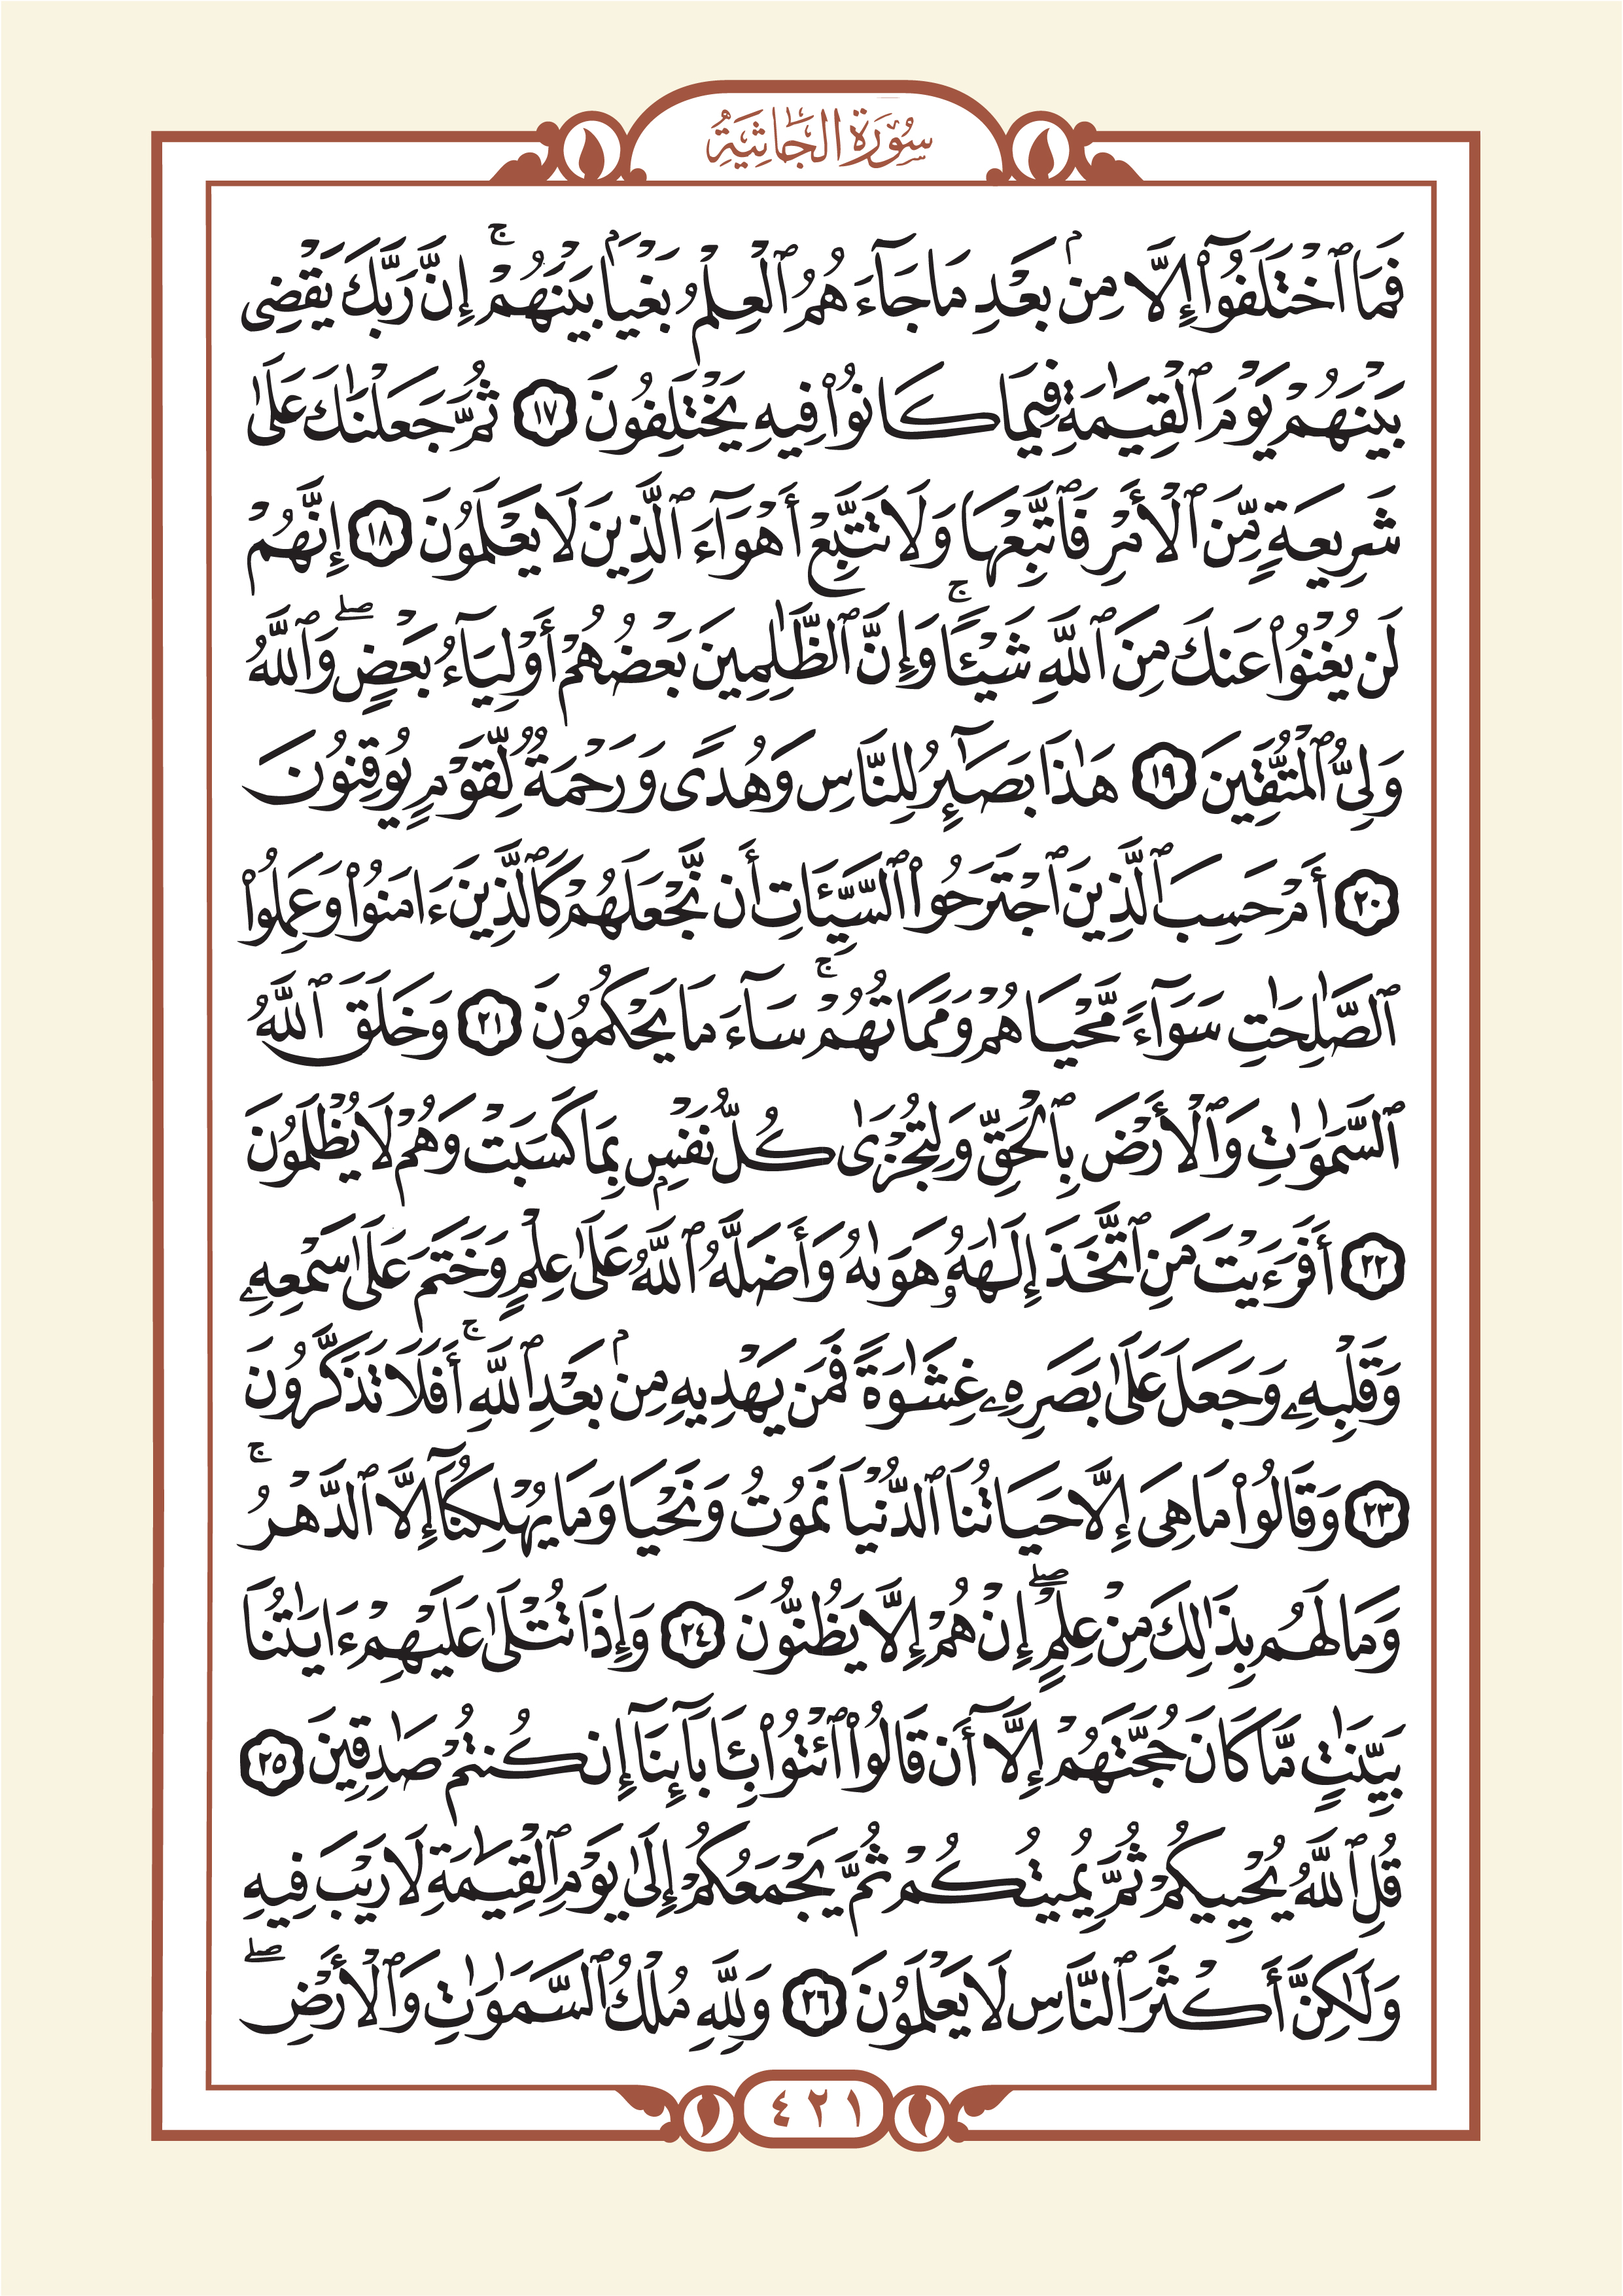 سُورَةُ الجَاثِيَةِ
فَمَا ٱخْتَلَفُوٓا۟ إِلَّا مِنۢ بَعْدِ مَا جَآءَهُمُ ٱلْعِلْمُ بَغْيًۢا بَيْنَهُمْ ۚ إِنَّ رَبَّكَ يَقْضِى
بَيْنَهُمْ يَوْمَ ٱلْقِيَـٰمَةِ فِيمَا كَانُوا۟ فِيهِ يَخْتَلِفُونَ ١٧ ثُمَّ جَعَلْنَـٰكَ عَلَىٰ
شَرِيعَةٍ مِّنَ ٱلْأَمْرِ فَٱتَّبِعْهَا وَلَا تَتَّبِعْ أَهْوَآءَ ٱلَّذِينَ لَا يَعْلَمُونَ ١٨ إِنَّهُمْ
لَن يُغْنُوا۟ عَنكَ مِنَ ٱللَّهِ شَيْـًٔا ۚ وَإِنَّ ٱلظَّـٰلِمِينَ بَعْضُهُمْ أَوْلِيَآءُ بَعْضٍ ۖ وَٱللَّهُ
وَلِىُّ ٱلْمُتَّقِينَ ١٩ هَـٰذَا بَصَـٰٓئِرُ لِلنَّاسِ وَهُدًى وَرَحْمَةٌ لِّقَوْمٍ يُوقِنُونَ
٢٠ أَمْ حَسِبَ ٱلَّذِينَ ٱجْتَرَحُوا۟ ٱلسَّيِّـَٔاتِ أَن نَّجْعَلَهُمْ كَٱلَّذِينَ ءَامَنُوا۟ وَعَمِلُوا۟
ٱلصَّـٰلِحَـٰتِ سَوَآءً مَّحْيَاهُمْ وَمَمَاتُهُمْ ۚ سَآءَ مَا يَحْكُمُونَ ٢١ وَخَلَقَ ٱللَّهُ
ٱلسَّمَـٰوَٰتِ وَٱلْأَرْضَ بِٱلْحَقِّ وَلِتُجْزَىٰ كُلُّ نَفْسٍۭ بِمَا كَسَبَتْ وَهُمْ لَا يُظْلَمُونَ
٢٢ أَفَرَءَيْتَ مَنِ ٱتَّخَذَ إِلَـٰهَهُۥ هَوَىٰهُ وَأَضَلَّهُ ٱللَّهُ عَلَىٰ عِلْمٍ وَخَتَمَ عَلَىٰ سَمْعِهِۦ
وَقَلْبِهِۦ وَجَعَلَ عَلَىٰ بَصَرِهِۦ غِشَـٰوَةً فَمَن يَهْدِيهِ مِنۢ بَعْدِ ٱللَّهِ ۚ أَفَلَا تَذَكَّرُونَ
٢٣ وَقَالُوا۟ مَا هِىَ إِلَّا حَيَاتُنَا ٱلدُّنْيَا نَمُوتُ وَنَحْيَا وَمَا يُهْلِكُنَآ إِلَّا ٱلدَّهْرُ ۚ
وَمَا لَهُم بِذَٰلِكَ مِنْ عِلْمٍ ۖ إِنْ هُمْ إِلَّا يَظُنُّونَ ٢٤ وَإِذَا تُتْلَىٰ عَلَيْهِمْ ءَايَـٰتُنَا
بَيِّنَـٰتٍ مَّا كَانَ حُجَّتَهُمْ إِلَّآ أَن قَالُوا۟ ٱئْتُوا۟ بِـَٔابَآئِنَآ إِن كُنتُمْ صَـٰدِقِينَ ٢٥
قُلِ ٱللَّهُ يُحْيِيكُمْ ثُمَّ يُمِيتُكُمْ ثُمَّ يَجْمَعُكُمْ إِلَىٰ يَوْمِ ٱلْقِيَـٰمَةِ لَا رَيْبَ فِيهِ
وَلَـٰكِنَّ أَكْثَرَ ٱلنَّاسِ لَا يَعْلَمُونَ ٢٦ وَلِلَّهِ مُلْكُ ٱلسَّمَـٰوَٰتِ وَٱلْأَرْضِ ۖ
٤٢١